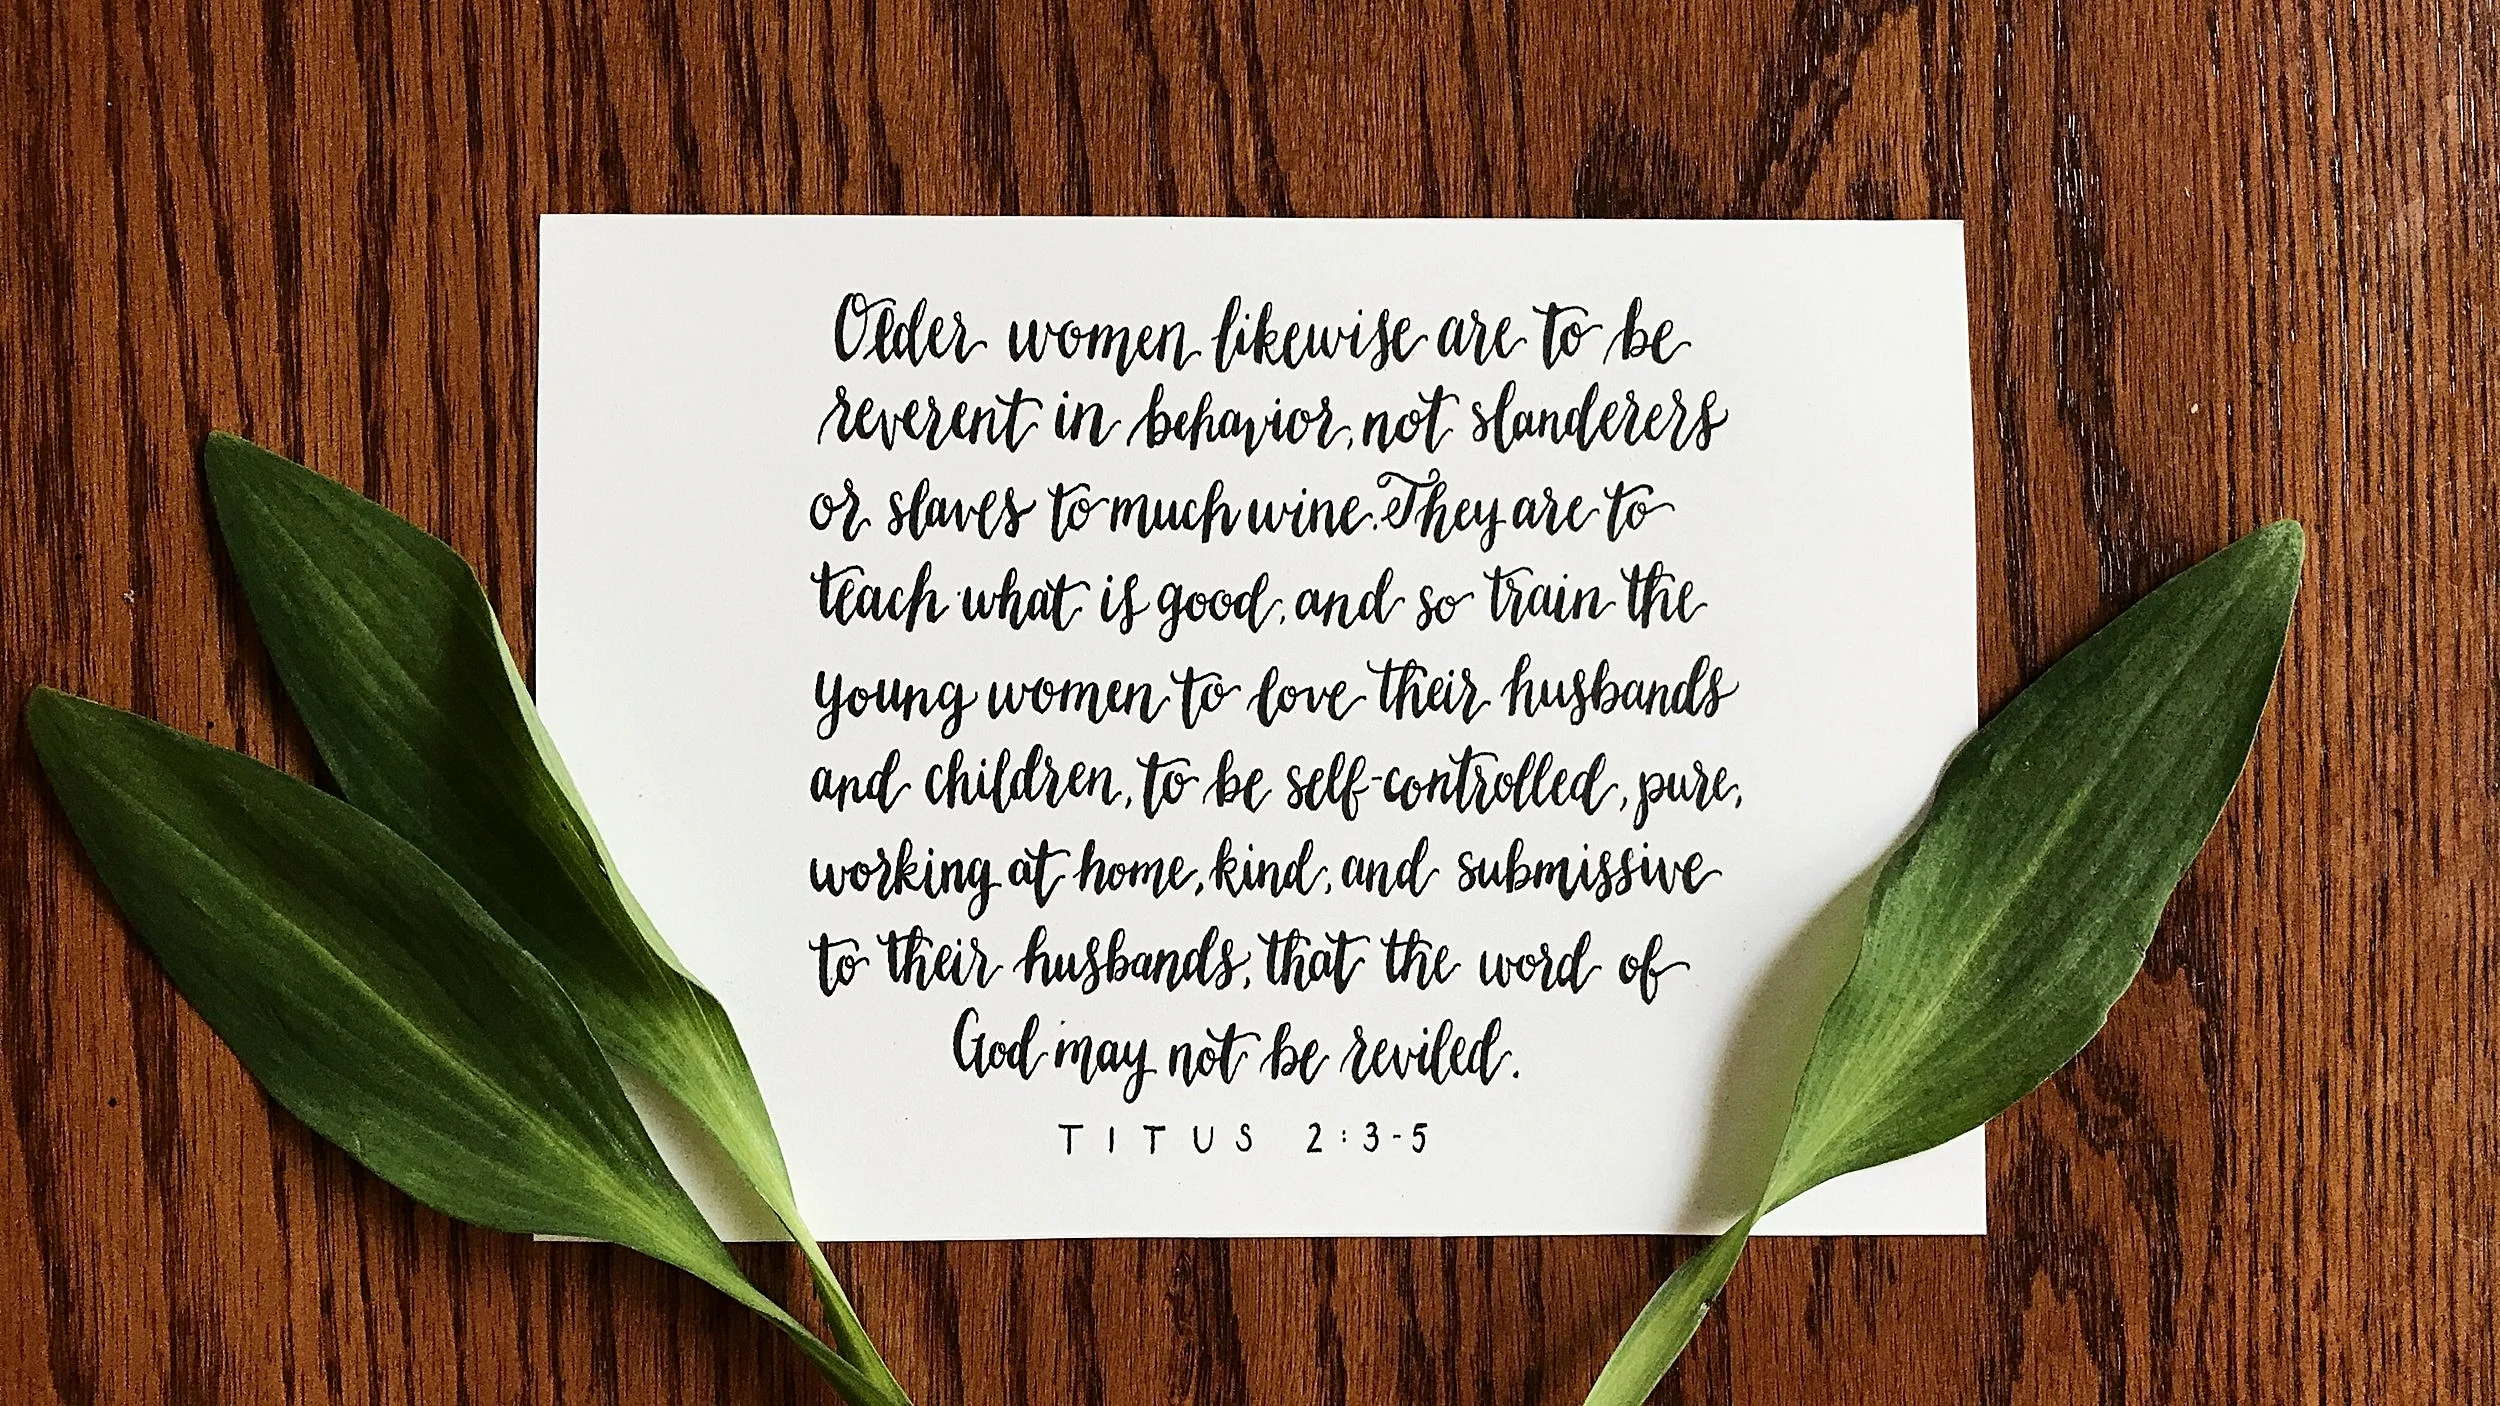 Older women likewise are to be
reverent in behavior, not slanderers
or slaves to much wine. They are to
teach what is good, and so train the
young women to love their husbands
and children, to be self-controlled, pure,
working at home, kind, and submissive
to their husbands, that the word of
God may not be reviled.
TITUS 2:3-5